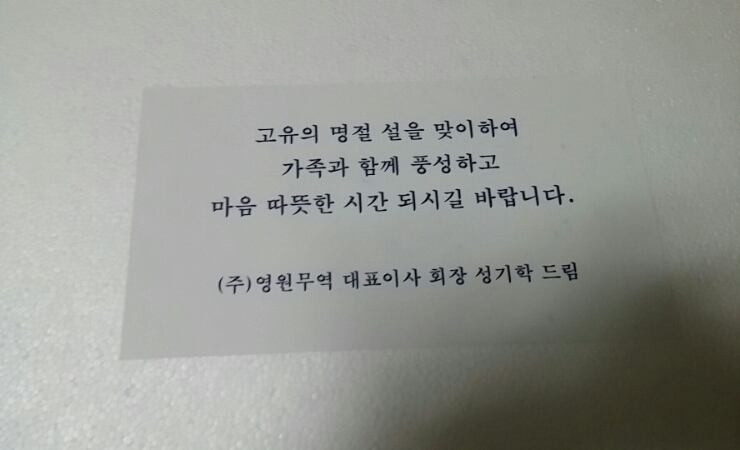 고유의 명절 설을 맞이하여
가족과 함께 풍성하고
마음 따뜻한 시간 되시길 바랍니다.
(주)영원무역 대표이사 회장 성기학 드림